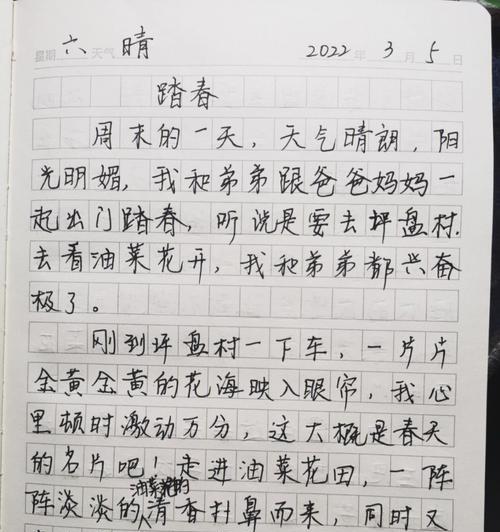 星期 六 天气 晴 2022 年 3 月 5 日
踏春
周末的一天，天气晴朗，阳
光明媚，我和弟弟跟爸爸妈妈一
起出门踏春，听说是要去坪盘村
去看油菜花开，我和弟弟都兴奋
极了。
刚到坪盘村一下车，一片片
金黄金黄的花海映入眼帘，我心
里顿时激动万分，这大概是春天
的名片吧！走进油菜花田，一阵
油菜花的
阵淡淡的清香扑鼻而来，同时又